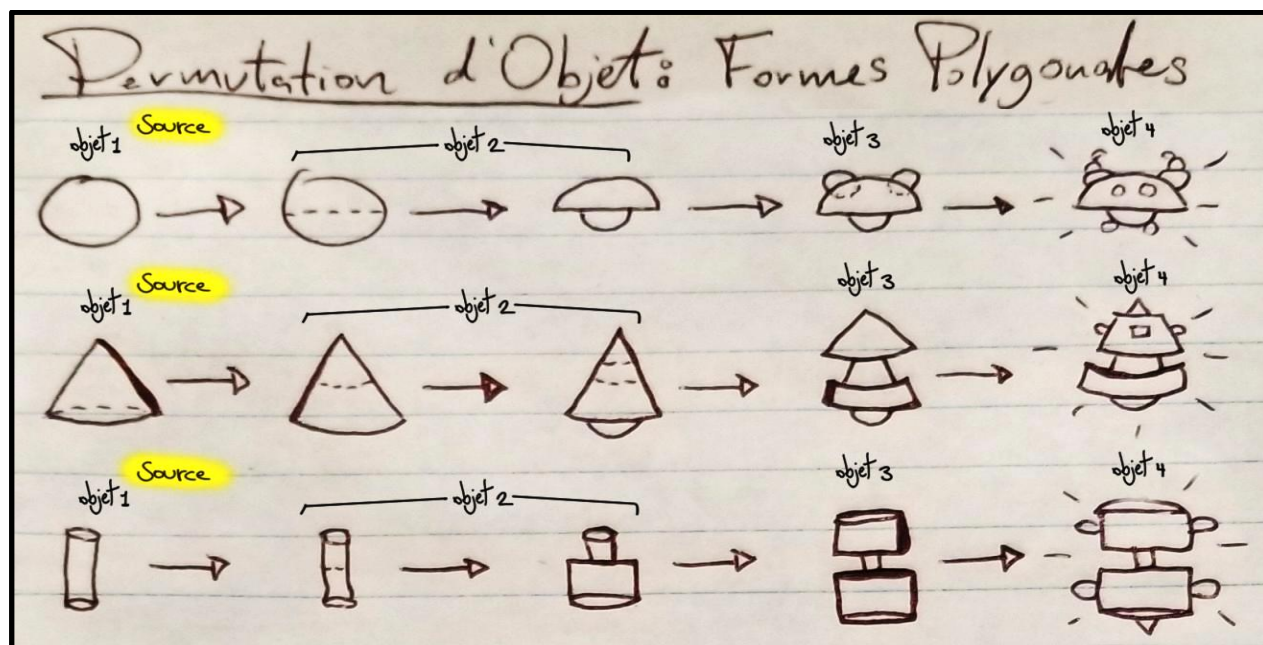 Permutation d'Objet: Formes Polygonales
Source
objet 1 objet 2 objet 3 objet 4
Source
objet 1 objet 2 objet 3 objet 4
Source
objet 1 objet 2 objet 3 objet 4